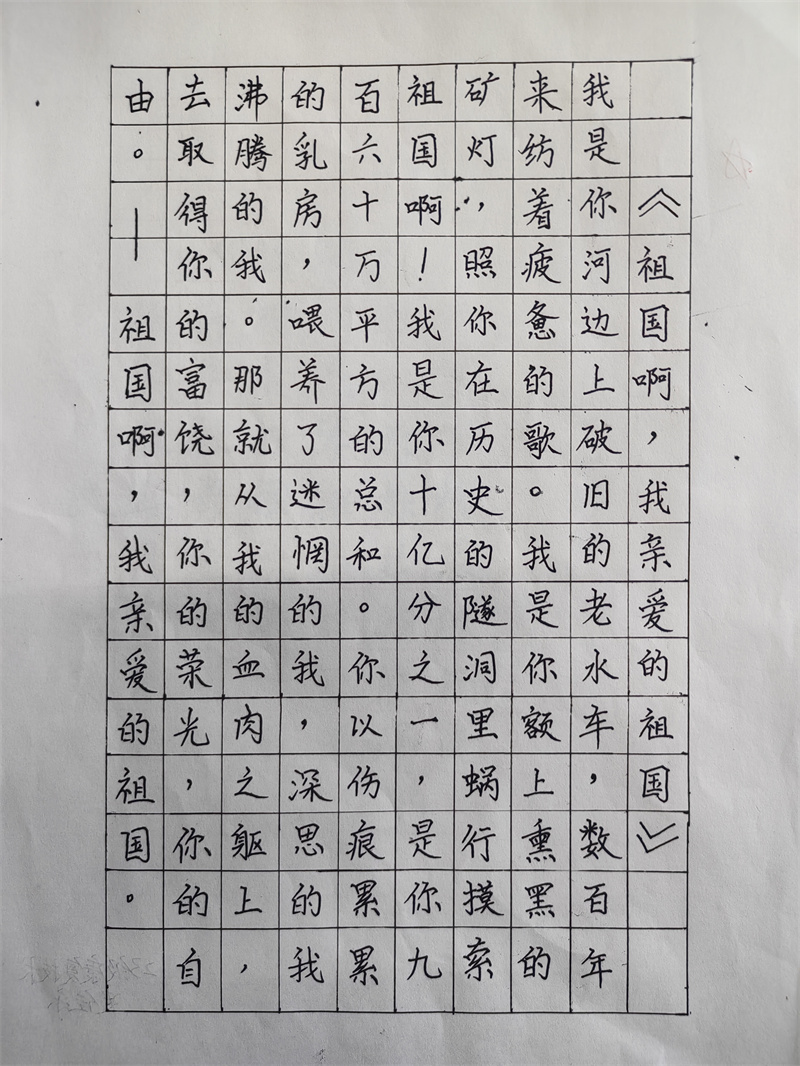 《祖国啊，我亲爱的祖国》
我是你河边上破旧的老水车，数百年
来纺着疲惫的歌。我是你额上熏黑的
矿灯，照你在历史的隧洞里蜗行摸索
祖国啊！我是你十亿分之一，是你九
百六十万平方的总和。你以伤痕累累
的乳房，喂养了迷惘的我，深思的我
沸腾的我。那就从我的血肉之躯上，
去取得你的富饶，你的荣光，你的自
由。——祖国啊，我亲爱的祖国。